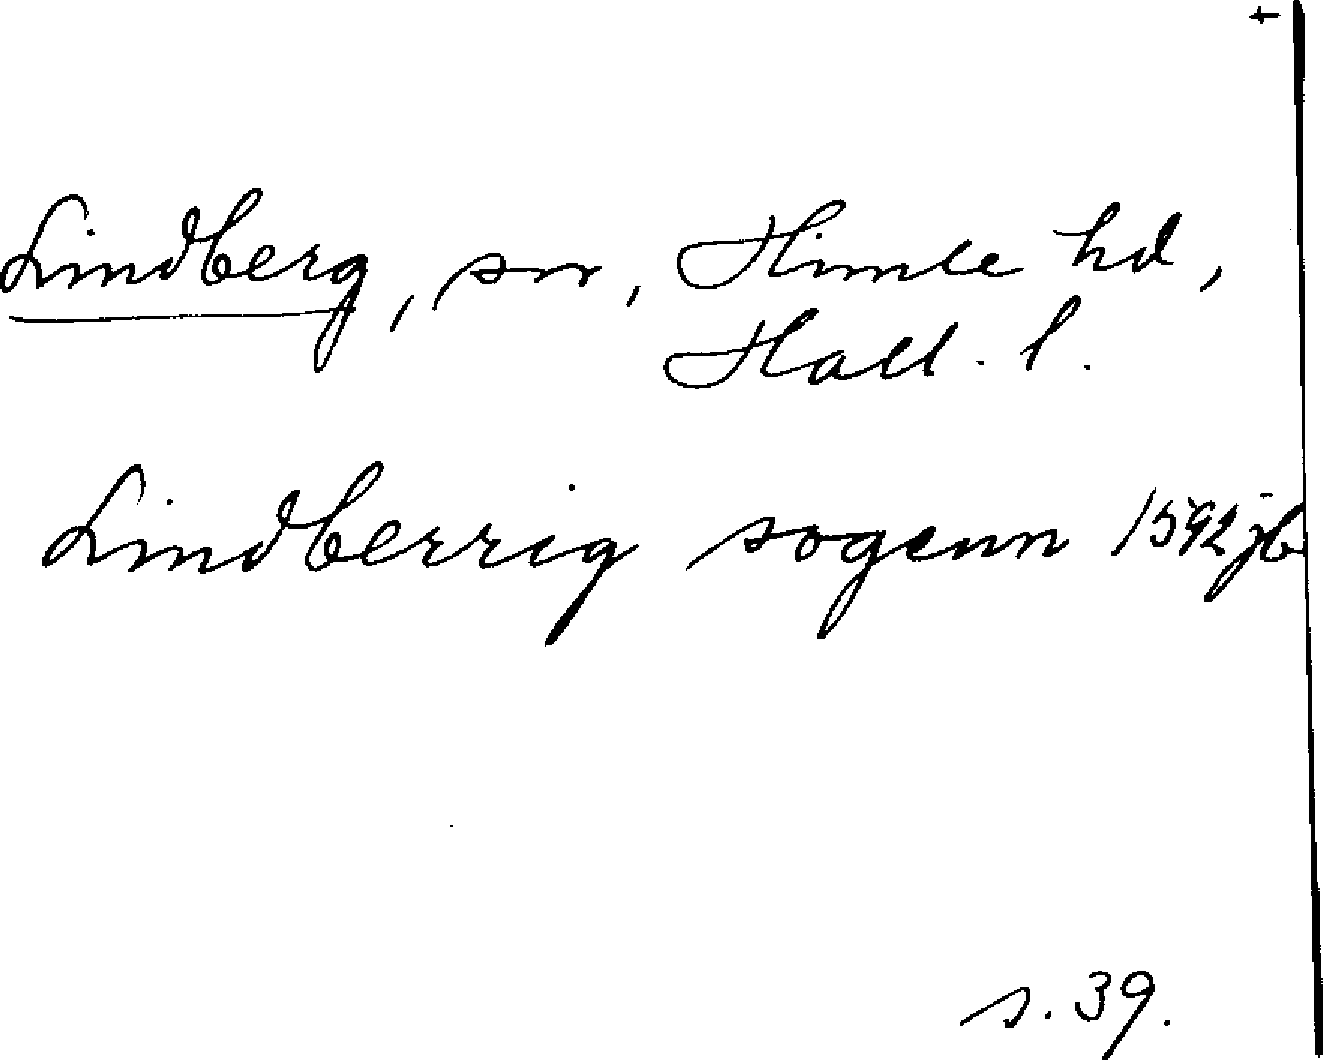 +
Lindberg, sn, Himle hd,
Hall. l.
Lindberrig sogenn 1592 jb
s. 39.